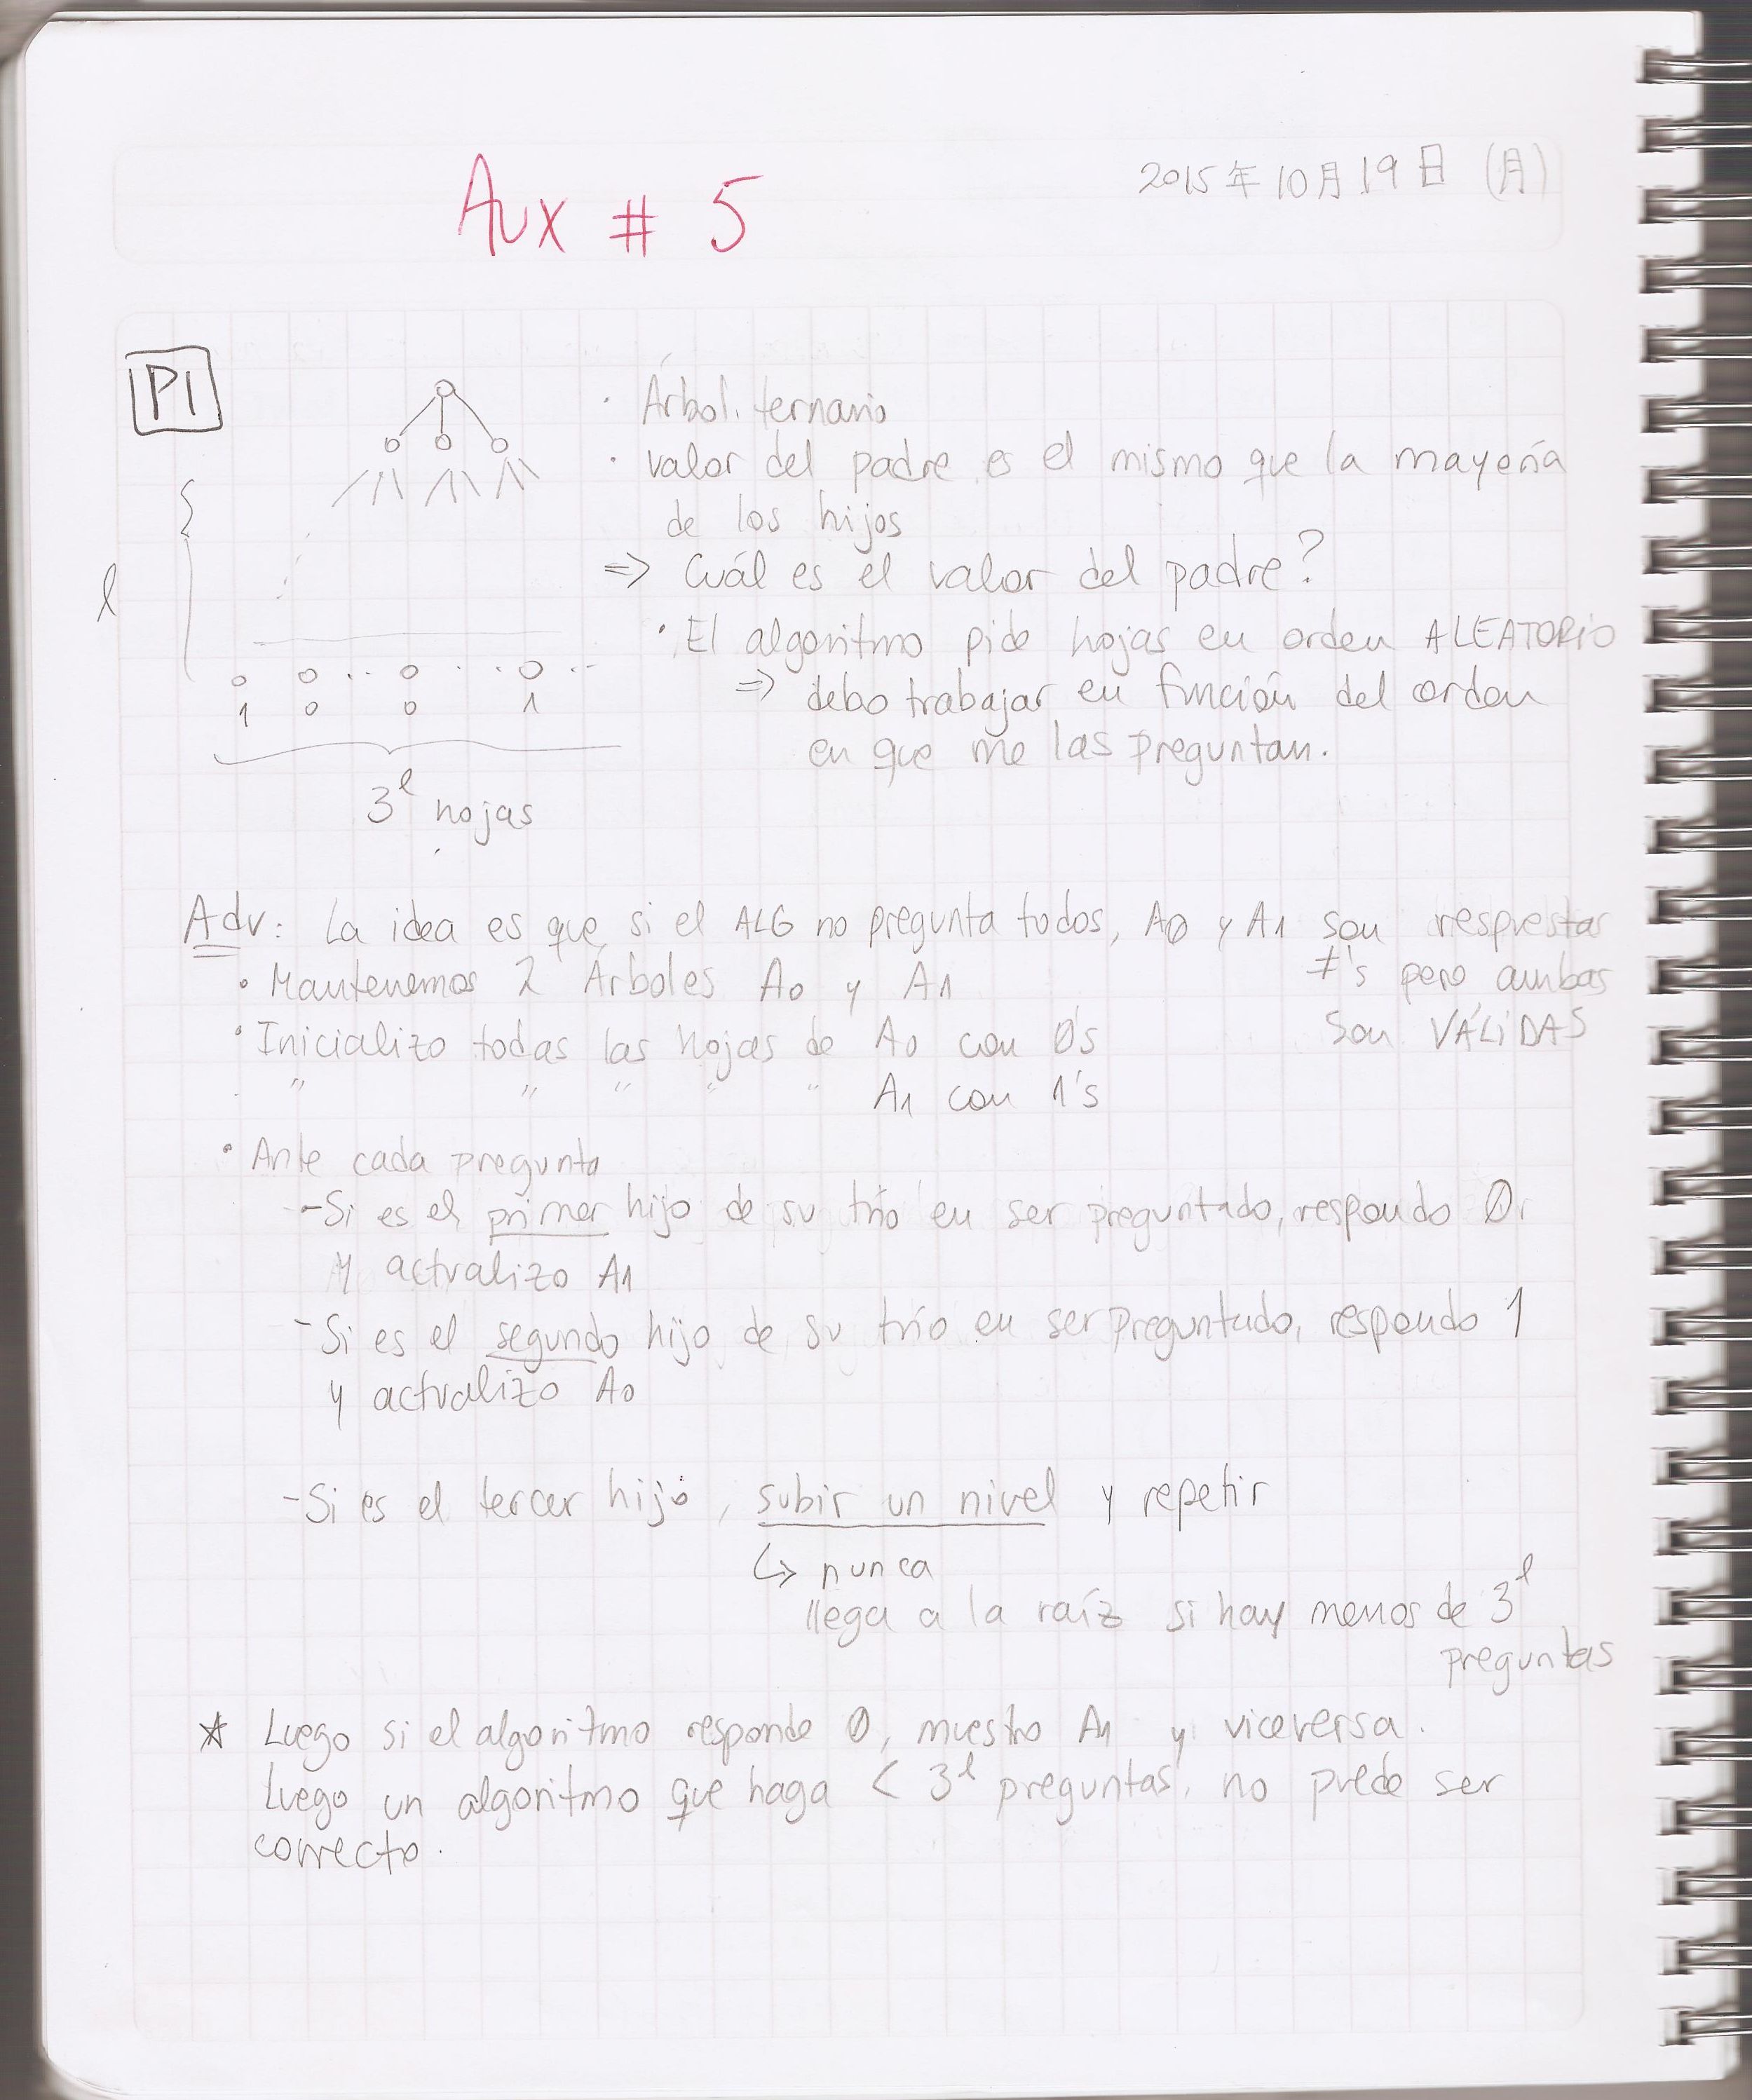 Aux # 5
2015年10月19日 (月)
P1
· Árbol ternario
· valor del padre es el mismo que la mayoría
de los hijos
⇒ Cuál es el valor del padre?
· El algoritmo pide hojas en orden ALEATORIO
⇒ debo trabajar en función del orden
en que me las preguntan.
l
1 0 0 1
3^l hojas
Adv: La idea es que si el ALG no pregunta todos, A0 y A1 son respuestas
≠'s pero ambas
son VÁLIDAS
· Mantenemos 2 Árboles A0 y A1
· Inicializo todas las hojas de A0 con 0's
" " " " " A1 con 1's
· Ante cada pregunta
- Si es el primer hijo de su trío en ser preguntado, respondo 0,
y actualizo A1
- Si es el segundo hijo de su trío en ser preguntado, respondo 1
y actualizo A0
- Si es el tercer hijo, subir un nivel y repetir
↳ nunca
llega a la raíz si hay menos de 3^l
preguntas
* Luego si el algoritmo responde 0, muestro A1 y viceversa.
Luego un algoritmo que haga < 3^l preguntas, no puede ser
correcto.